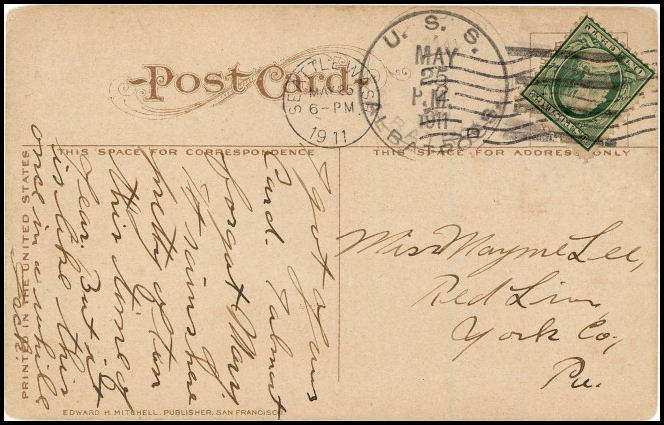 Post Card
SEATTLE, WASH.
MAY 25
6-PM
1911
U. S. S.
MAY
25
P.M.
1911
ALBATROSS
THIS SPACE FOR CORRESPONDENCE
THIS SPACE FOR ADDRESS ONLY
PRINTED IN THE UNITED STATES
I got yours
Card. Almost
forgot Mary
It rains here
pretty often
this time of
year. But it
is like this
once in a while
Miss Mayme Lee,
Red Lion
York Co,
Pa.
EDWARD H. MITCHELL, PUBLISHER, SAN FRANCISCO